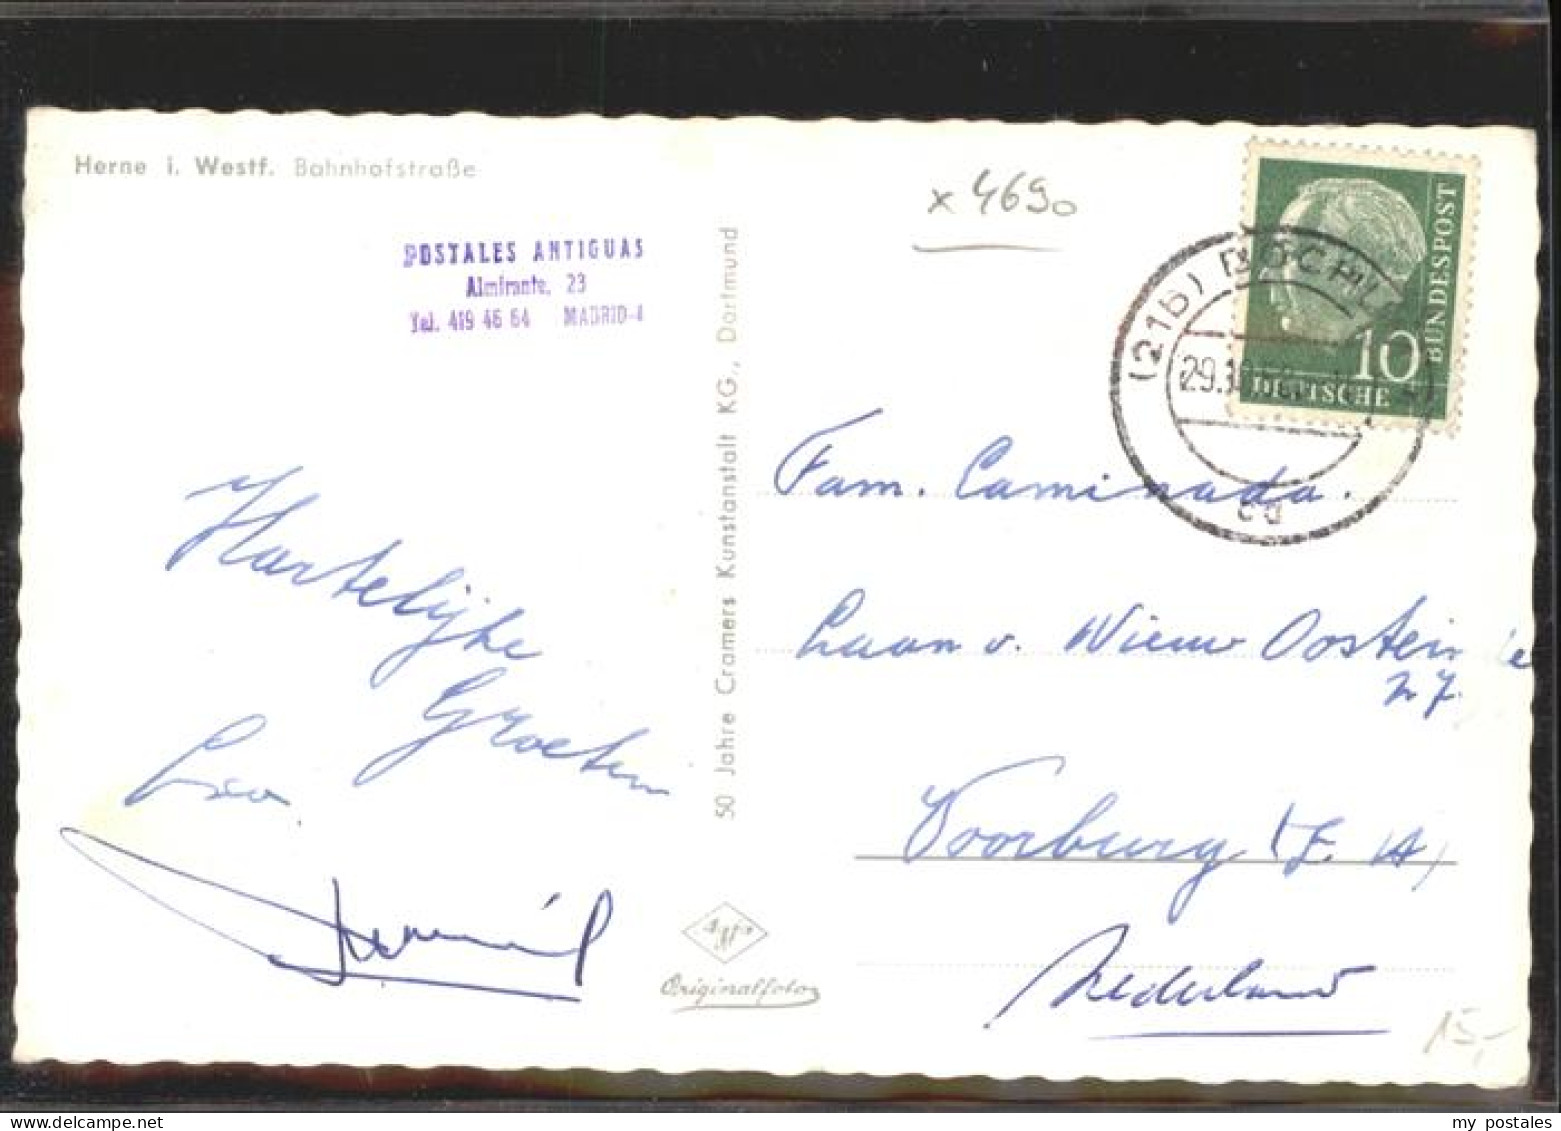 Herne i. Westf. Bahnhofstraße
POSTALES ANTIGUAS
Almirante, 23
Tel. 419 46 64 MADRID-4
x 4690
DEUTSCHE BUNDESPOST
10
(21b)
29.
cd
50 Jahre Cramers Kunstanstalt KG., Dortmund
Hartelijke
Groeten
Leo
Fam. Caminada.
Laan v. Nieuw Oostein
Voorburg (Z. H)
Nederland
Agfa
Originalfoto
15,-
my postales